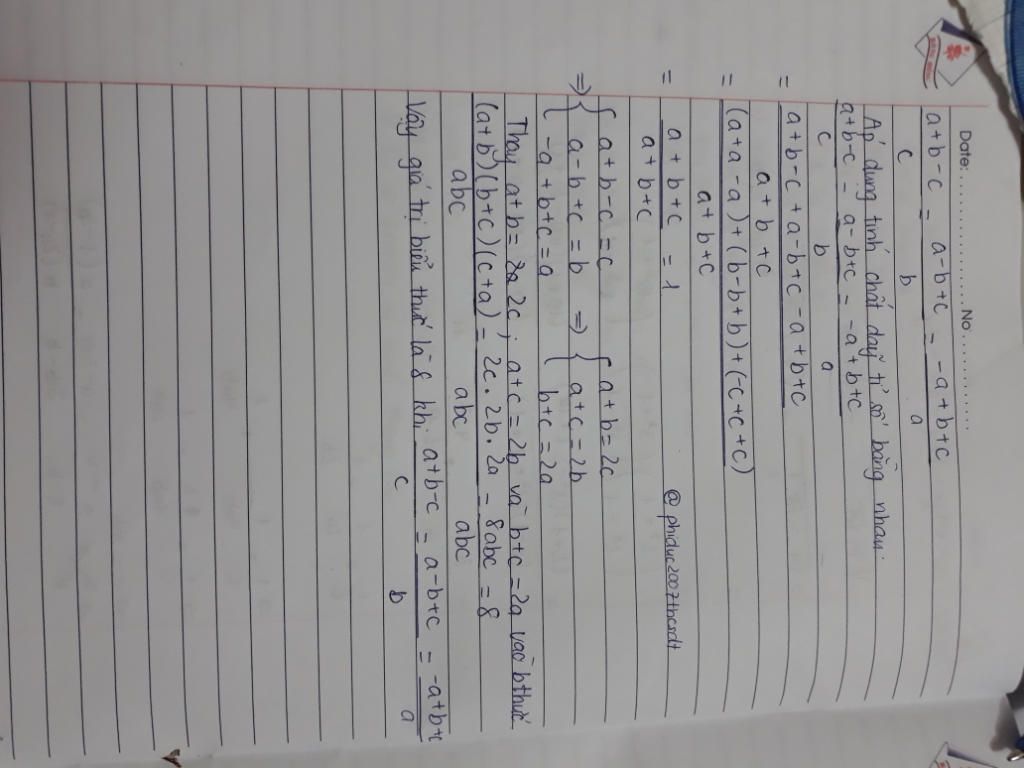 Date: .................... No: ....................
a+b-c = a-b+c = -a+b+c
c b a
Áp dụng tính chất dãy tỉ số bằng nhau:
a+b-c = a-b+c = -a+b+c
c b a
= a+b-c+a-b+c-a+b+c
a+b+c
= (a+a-a)+(b-b+b)+(-c+c+c)
a+b+c
= a+b+c = 1 @phiduc2007thcsdt
a+b+c
{ a+b-c=c { a+b=2c
=> { a-b+c=b => { a+c=2b
{ -a+b+c=a { b+c=2a
Thay a+b= 2c; a+c=2b và b+c=2a vào bthức
(a+b)(b+c)(c+a) = 2c.2b.2a = 8abc = 8
abc abc abc
Vậy giá trị biểu thức là 8 khi a+b-c = a-b+c = -a+b+c
c b a